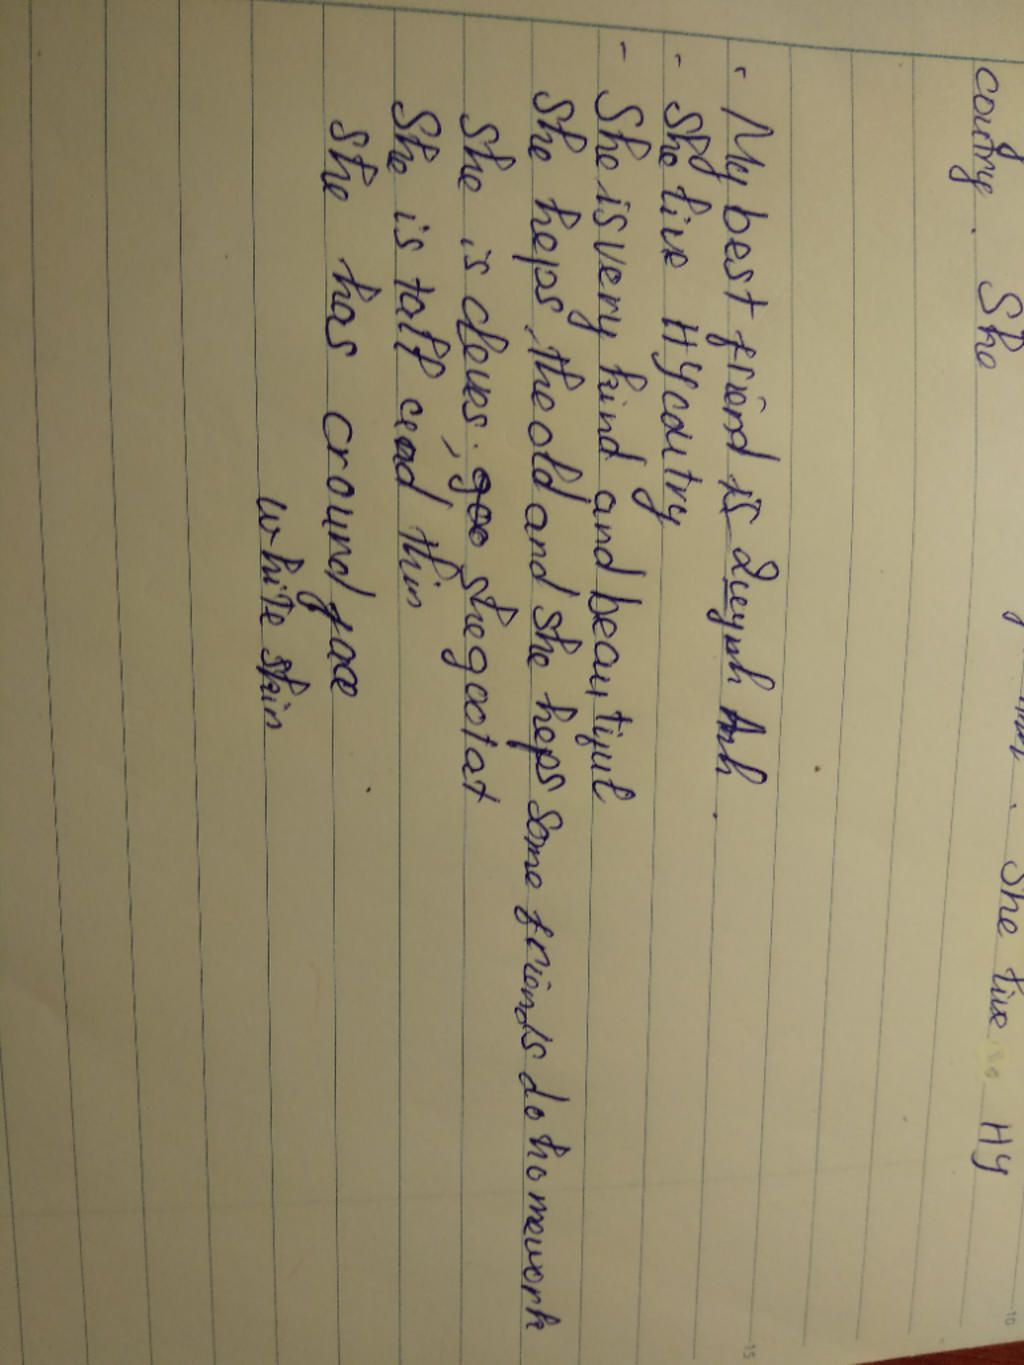 She live HY
coutry. She
- My best friend is Quynh Anh.
- She live HY coutry
- She is very kind and beautiful
She heps the old and she heps some friends do homework
She is clever, goo she good at
She is tall and thin
She has a round face
white skin
15
10